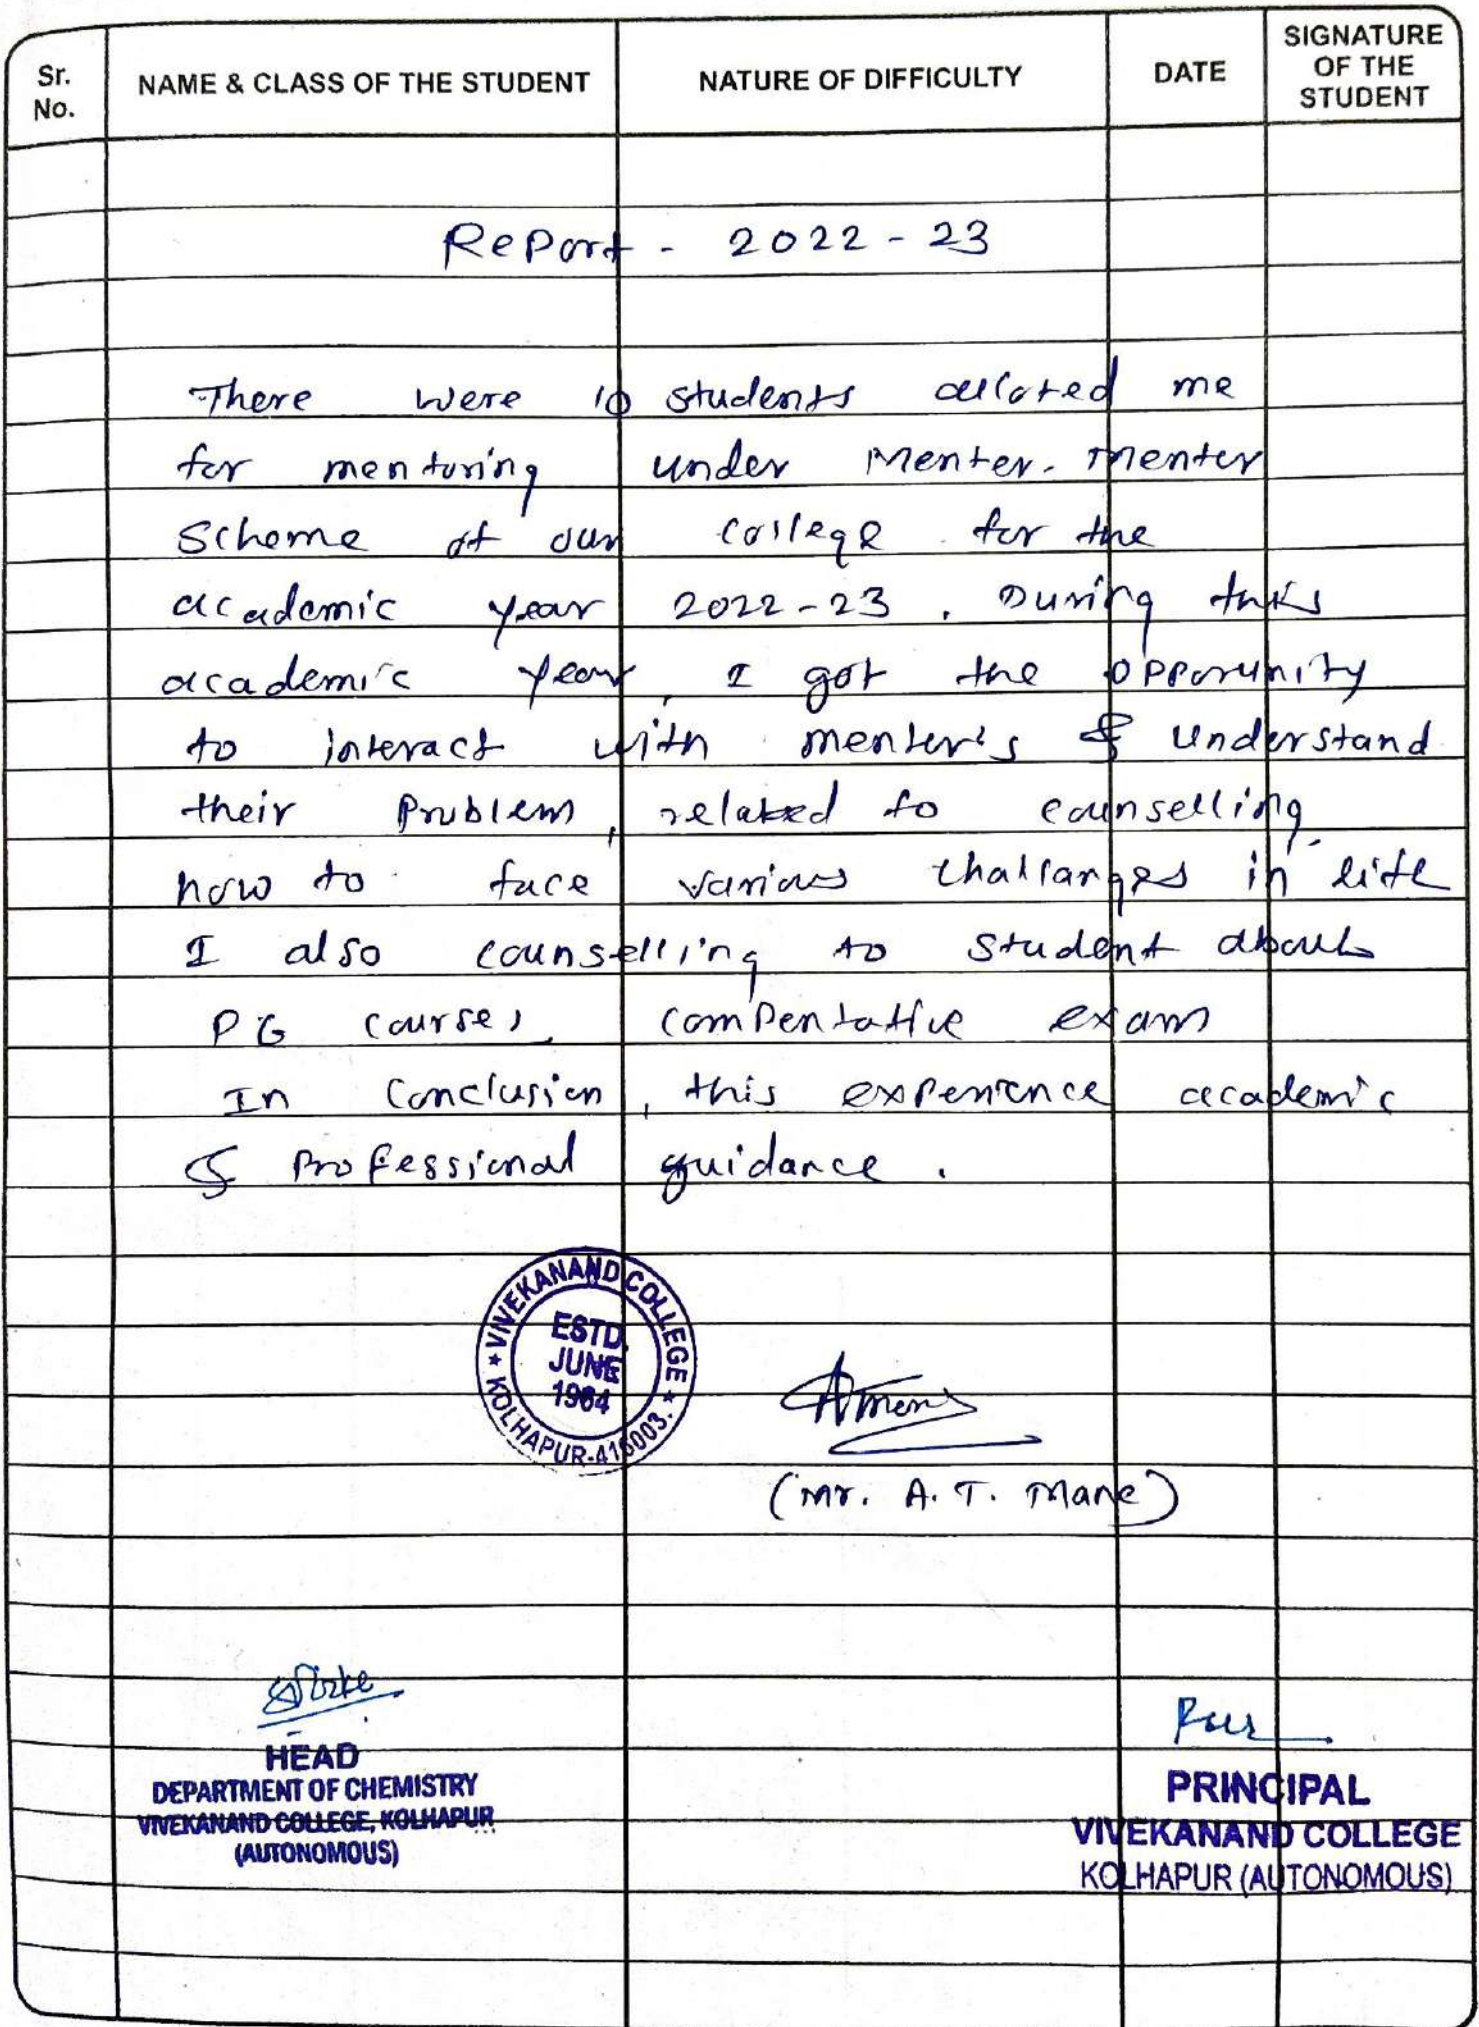 Sr. No.
NAME & CLASS OF THE STUDENT
NATURE OF DIFFICULTY
DATE
SIGNATURE OF THE STUDENT
Report - 2022-23
There were 10 students alloted me
for mentoring under Menter-Menter
Scheme of our college for the
academic year 2022-23. During this
academic year, I got the opporunity
to interact with menter's & understand
their problem, related to counselling
how to face various challanges in life
I also counselling to student about
PG courses, compentative exam
In conclusion, this experience academic
& Professional guidance.
★ VIVEKANAND COLLEGE ★
KOLHAPUR-416003.
ESTD.
JUNE
1964
(Mr. A. T. Mane)
HEAD
DEPARTMENT OF CHEMISTRY
VIVEKANAND COLLEGE, KOLHAPUR
(AUTONOMOUS)
PRINCIPAL
VIVEKANAND COLLEGE
KOLHAPUR (AUTONOMOUS)